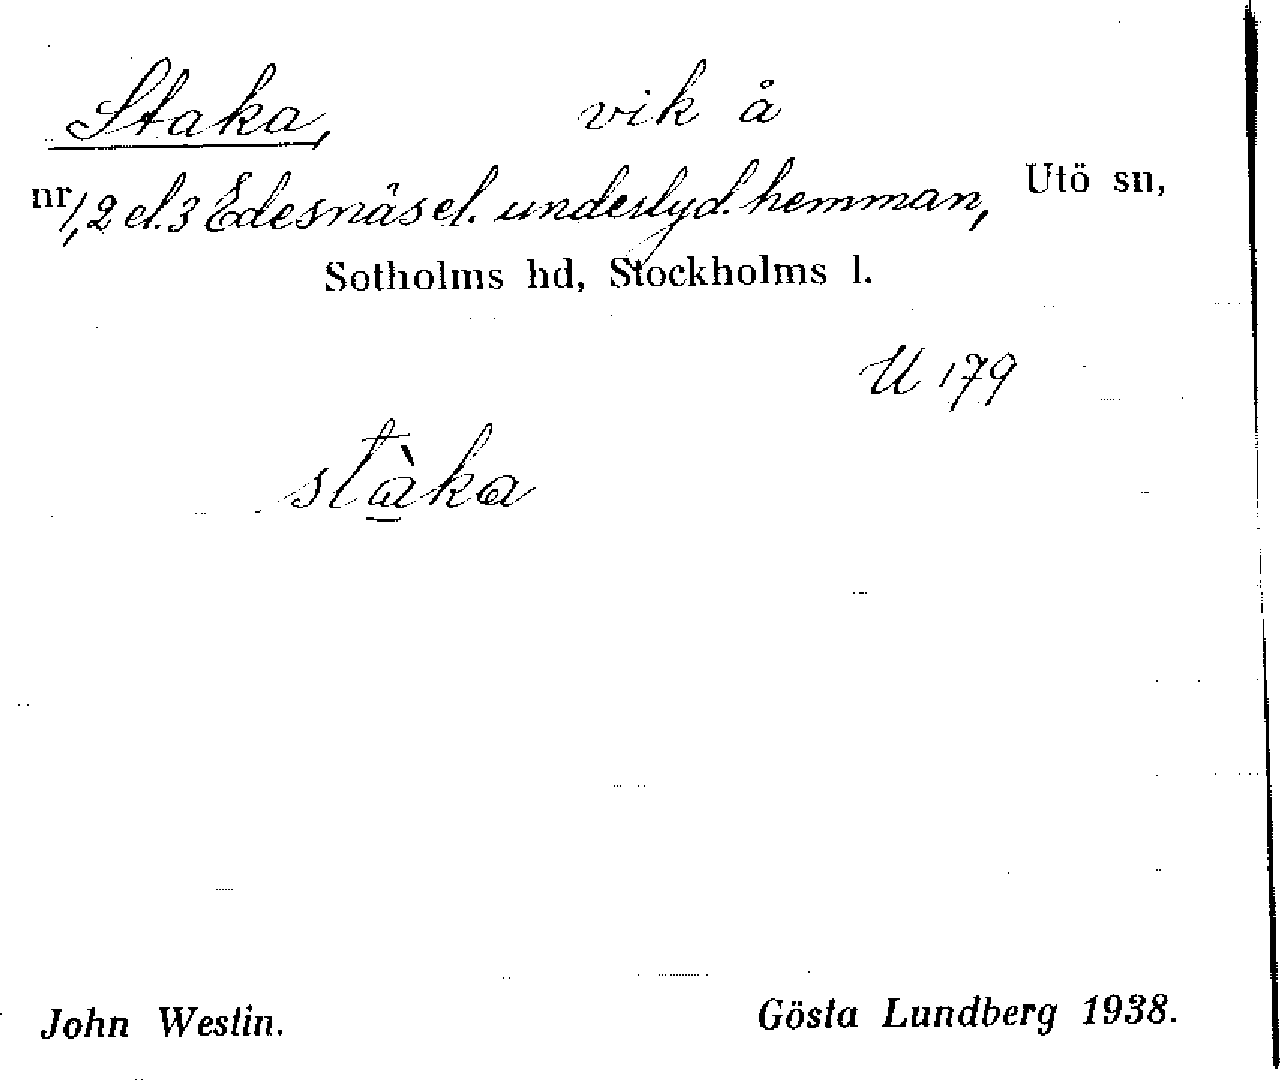 Staka, vik å
nr 1, 2 el. 3 Edesnäs el. underlyd. hemman, Utö sn,
Sotholms hd, Stockholms l.
U 179
stàka
John Westin. Gösta Lundberg 1938.